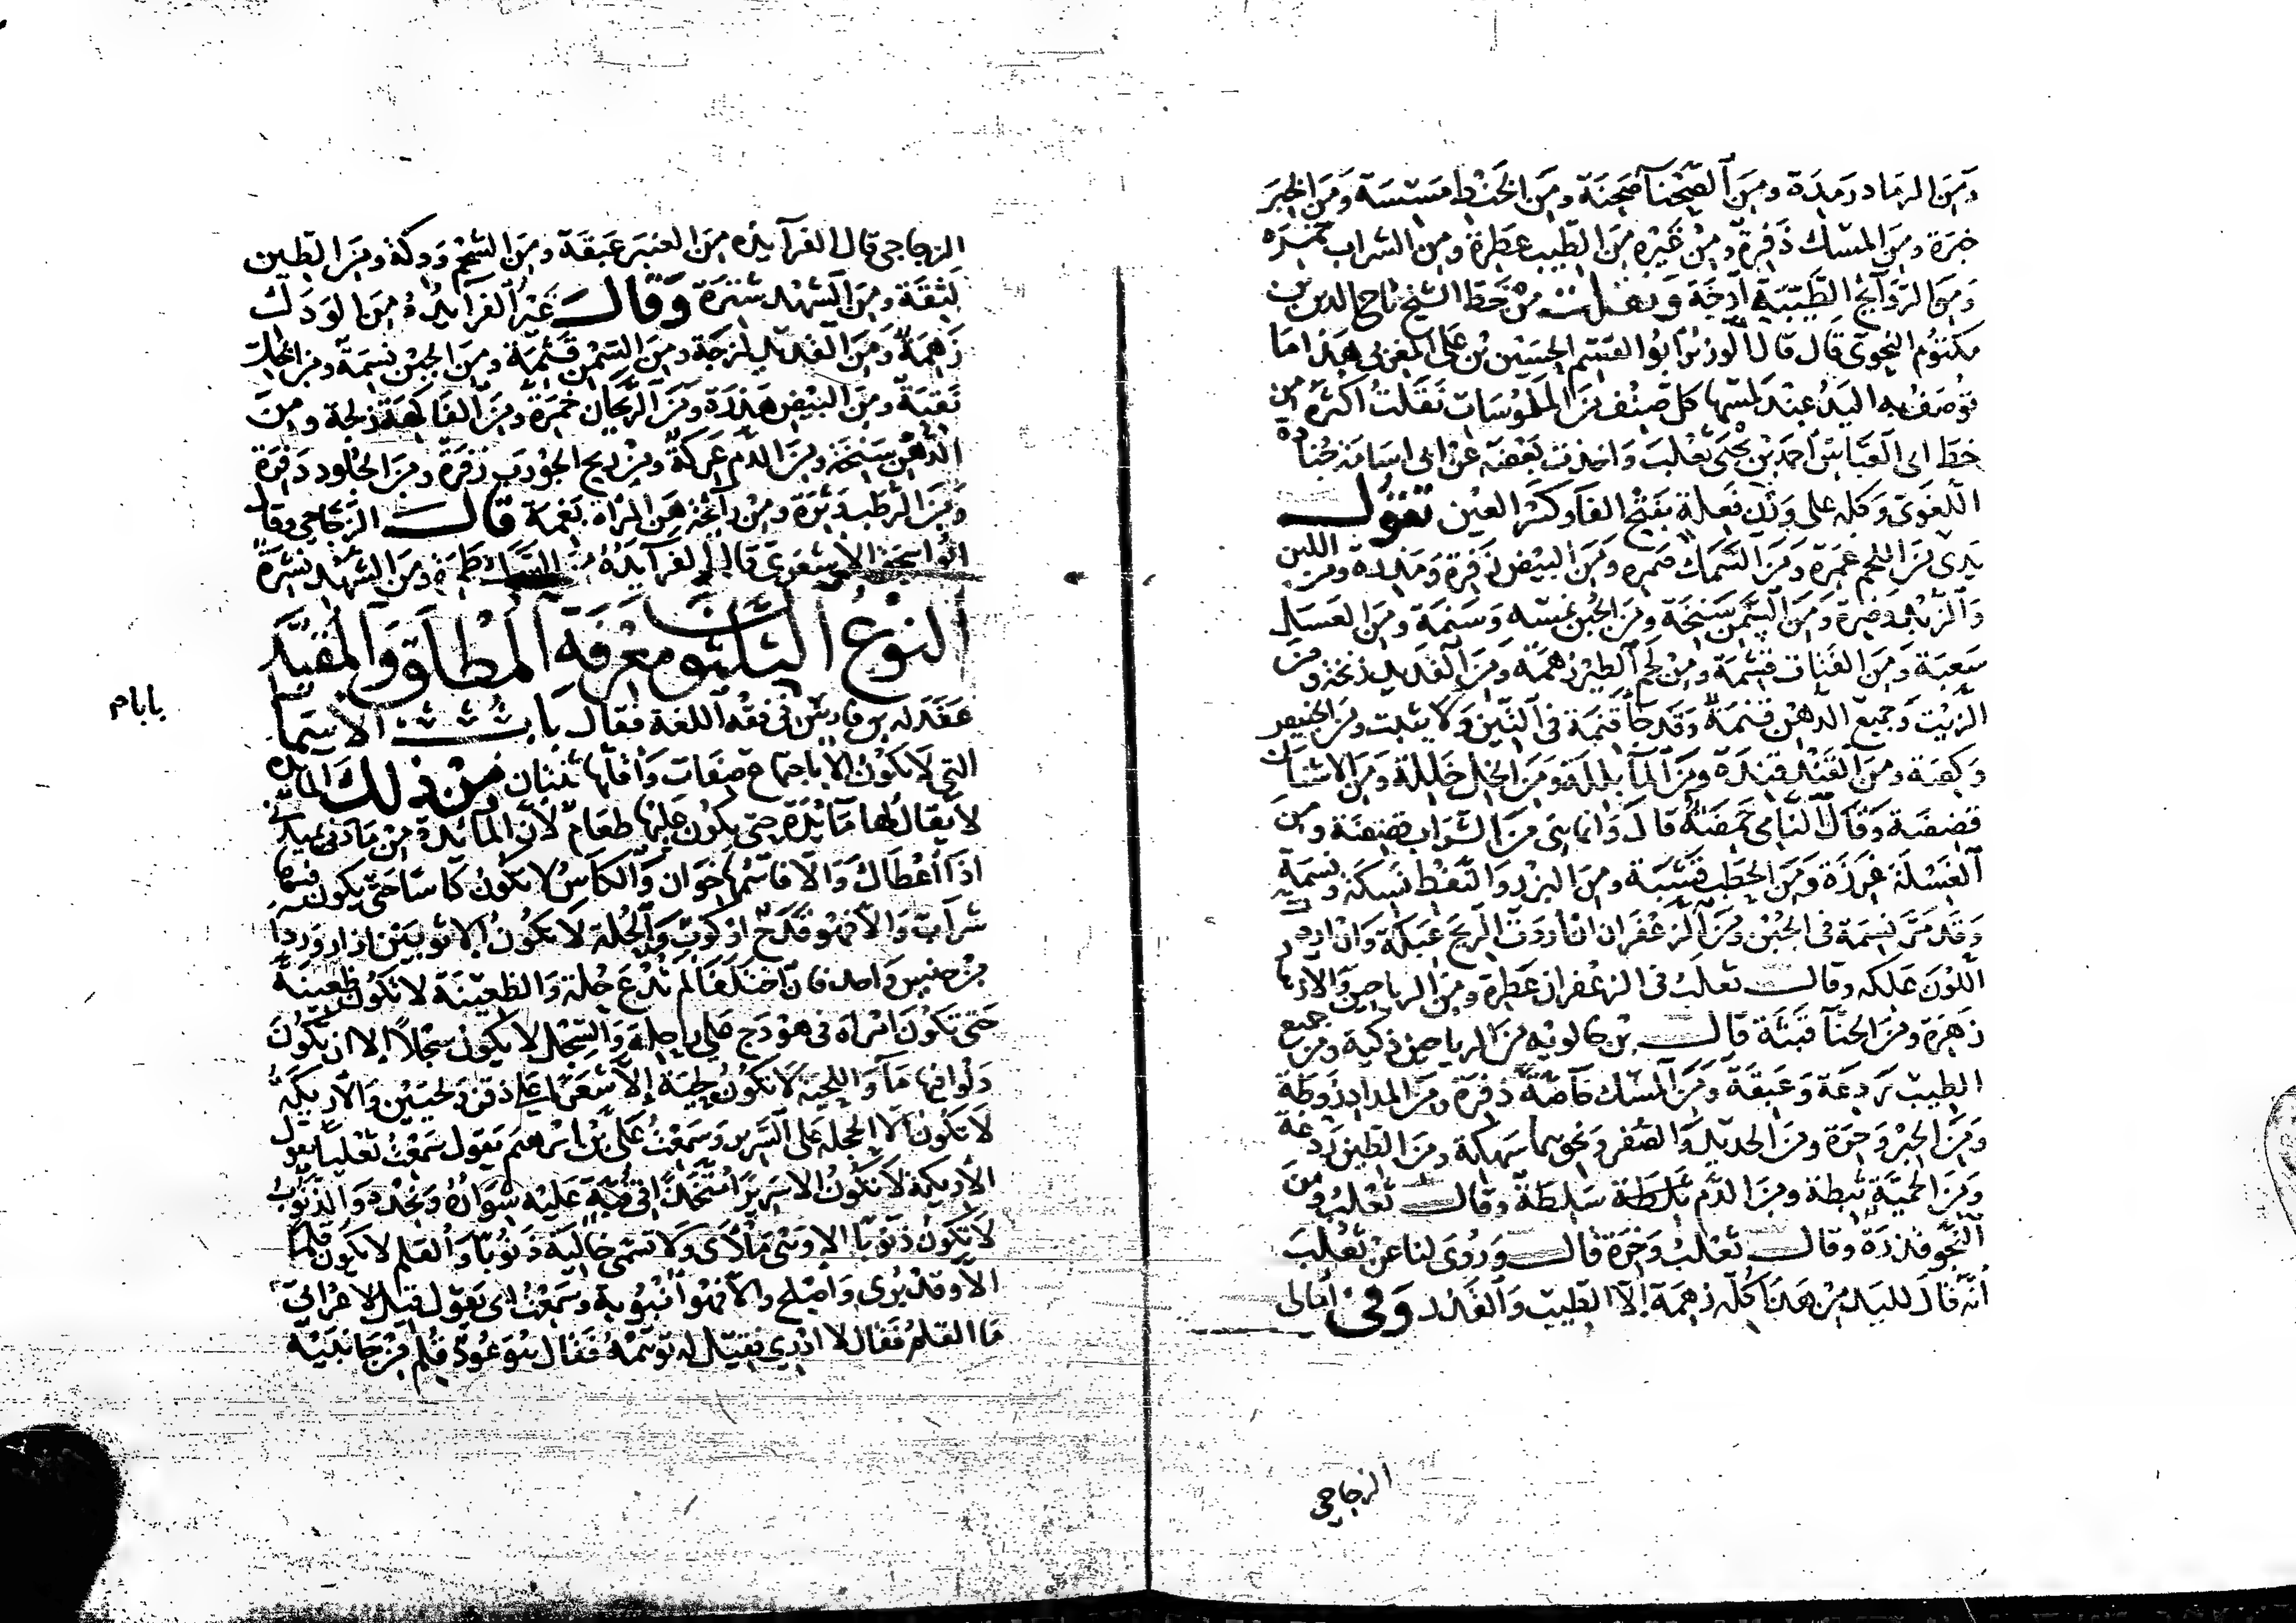 وَمِنَ الرمَاد رَمِدَة ومِنَ الصِّحْنَا صَحِنَة ومِنَ الخَنْط مَسِسَة وَمِنَ الخِبَر
خبرَة ومِنَ المسْك ذَفِرة ومِنْ غَيْره مِنَ الطّيب عطِرة ومِن الشراب خَمِرَه
وَمِنَ الرَّوَآئِح الطَّيِّبَةِ أَرِجَة وَنقلت مِنْ خَطّ الشيخ تاج الدين بن
مكتوُم النحوي قَال قال الوَزيْر أبُوا القسم الحسَيْن بْن عَلى المغربى هَذا مَا
توُصَفُ به اليَدُ عِنْد لمسْها كلّ صِنْف مِنَ الملمُوسَات نَقلتُ أكثرهُ من
خط ابى العَبّاسْ أحمَد بْن يَحْيَى ثعْلبَ وَاخذت بَعْضه عنْ ابى اسَامَة جُنادة
اللغَوى وَكله على وَزن فَعِلة بفَتْح الفآ وكسْر العيْن تقوُل
يَدى مِنَ اللحْم غمِرَة وَمِنَ السّمَك صَمِره وَمِنَ البَيْض ذَفِرة وَمَذِره ومِنَ اللبن
وَالزُبْد وَضِرة وَمِنَ السّمْن سَنِخَة ومِنَ الجُبْن نمِسَه وَسَنِمَة ومِنَ العَسَل
سَعِبَة وَمِنَ القَتات قتِمَة ومِنْ لَحْم الطيْر زَهِمَة وَمِنَ القَدِيد ومِنَ
الزيْت وَجميع الدهْن قنِمَة وَقَد جَآ قَنِمَة فى التّين وَلا يثبت ومنَ
وَكعِبَة ومنَ القَنْد قَنِدَة ومِنَ المآ بلِلة وَمِنَ الخلّ خَلِلة وَمِنَ الاشنان
قضِضَة وَقَال النامى حَمِضَة قال وَانما مِنَ الترَاب ومِنَ
الغسْلة وَمِنَ الحَطب قَشِبَة ومِنَ البزر وَالنّفْط نسِكَة ونسِمَة
وَقَد مَرّ نسِمَة فى الجُبْن ومِنَ الزعْفَران ان أرَدْتَ الرّيحَ عَبِكَة وَان اردت
اللّوْنَ عَلِكه وقَالـ ثعلَب فى الزعْفران عَطِرة ومِنَ الريَاحين وَالازهار
زهِرَة ومِنَ الحِنّآ قَنِئَة قالـ بْن خالويْه مِنَ الرياحين ذكية ومِنْ جميع
الطيب رَدِعَة وَعَبِقَة ومِنَ المسْك خآصّة ذَفِرَة ومنَ المداد زَوطة
وَمِنَ الحِبْر وَحِرَة ومِنَ الحديد وَالصّفر وَنحوهما سَهِكة ومِنَ الطين رَدغة
وَمِنَ الحمْأة ثبِطة ومِنَ الدّم سَلِطَة وقَالـ ثعْلبُ ومنَ
النّجْو قذِرَة وقالـ ثعْلبُ وَحرَة قالـ وَرُوى لنا عَنْ ثعْلبَ
انّه قَالَ لليَد مِنْ هَذَا كُلّه زَهِمَة إلّا الطيب وَالقَذِر وَفى أمَالى
الزجاجى
الزجاجى قال الفرآ يَدُه مِنَ العنبَر عَبِقَة ومِنَ الشّحْم وَدكة ومِنَ الطين
لَثِقَة ومِنَ الشهْد شتِرَة وقالـَ غيْر الفرآ يَدُهُ مِنَ الوَدَك
زَهِمَة وَمِنَ القديْد لزِجَة ومِنَ السّمْن قَنِمَة ومِنَ الجبْن نسِمَة ومِنَ الخلّ
نَقِبَة ومِنَ البَيْض هَذرَة ومِنَ الرّيحَان خَمِرة ومِنَ الفَاكهَة زلِجة ومِنَ
الدُّهْن سَنِخَة ومِنَ الدّم عَرِكة ومِنْ ريح الجَوْرَب زفِرَة ومِنَ الجُلود دَفِرَة
وَمِنَ الرّطب وَتِرَة ومِنْ رآئحة هَنِ المرْأة بَغِمَة قَالـَ الزّجّاجى وقال
ابُوا سحَق الاشعَرىّ قال الفرآ يَدُهُ مِنَ السّمَك طَمِرة ومِنَ الشهْد نشِرَةٌ
النوْعُ الثلثون مَعْرفَةِ المُطْلَق وَالمقيَّد
عَقَدَ له بن فارسْ فى فقْه اللغة فقال بَابُ الأسمَآ
التى لا تكوُن الّا باجتماع صِفَات وَأقلّها ثنتان مِنْ ذلِكَ المائده
لا يُقَال لها مَآئدَة حتى يكوُن عَليْها طعَامٌ لأنّ المآئدة مِنْ مَادنى يَميدنى
اذَا أَعْطَاكَ وَالّا فاسْمها خوَان وَالكاسُ لا تكوُن كاسًا حَتى يكوُن فيها
شرَاب وَالّا فهُو قَدَح أو كوُب وَالحُلة لا تكوُن إلا ثوبَيْن ازار وردا
مِنْ جنس وَاحد فان اخْتلفَا لم تُدْعَ حُلّة وَالظعِيْنَة لا تكوُن ظعِينَة
حَتّى تكوُنَ امْرَأة فى هَوْدَج عَلى رَاحِلةٍ وَالسّجْل لا يكوُن سَجْلاً إلا ان تكوُنَ
دَلْوا فيها مَآ وَاللحْية لا تكوُن لِحْيَة إلّا شَعَرًا عَلى ذقن وَلَحْيَيْن وَالاريكَة
لا تكوُن الّا الحجلة عَلى السّرير وَسَمِعْتُ عَلىّ بْن ابرهيمَ يَقول سَمعْتُ ثعْلبًا يَقول
الأريكة لا تكوُن الا سريرا مُتّخَذًا فى قُبّةٍ عَليْه شوَارُهُ وَنَجْدُهُ وَالذّنوُبُ
لا تكوُن ذَنوُبًا إلا وَهْى مَلْأَى وَلا تسَمّى خاليَة ذَنوُبًا وَالقلم لا يكوُن قلما
الّا وَقدْ بُرى وَاصْلح وَالّا فهُوَ أنبوُبة وَسَمِعْتُ ابى يَقوُل قيل لأعْرَابى
مَا القلمُ فقال لا ادْرى فقِيْل له توَهمْهُ فقال هُوَ عُودٌ قُلِمَ مِنْ جَانبَيْه